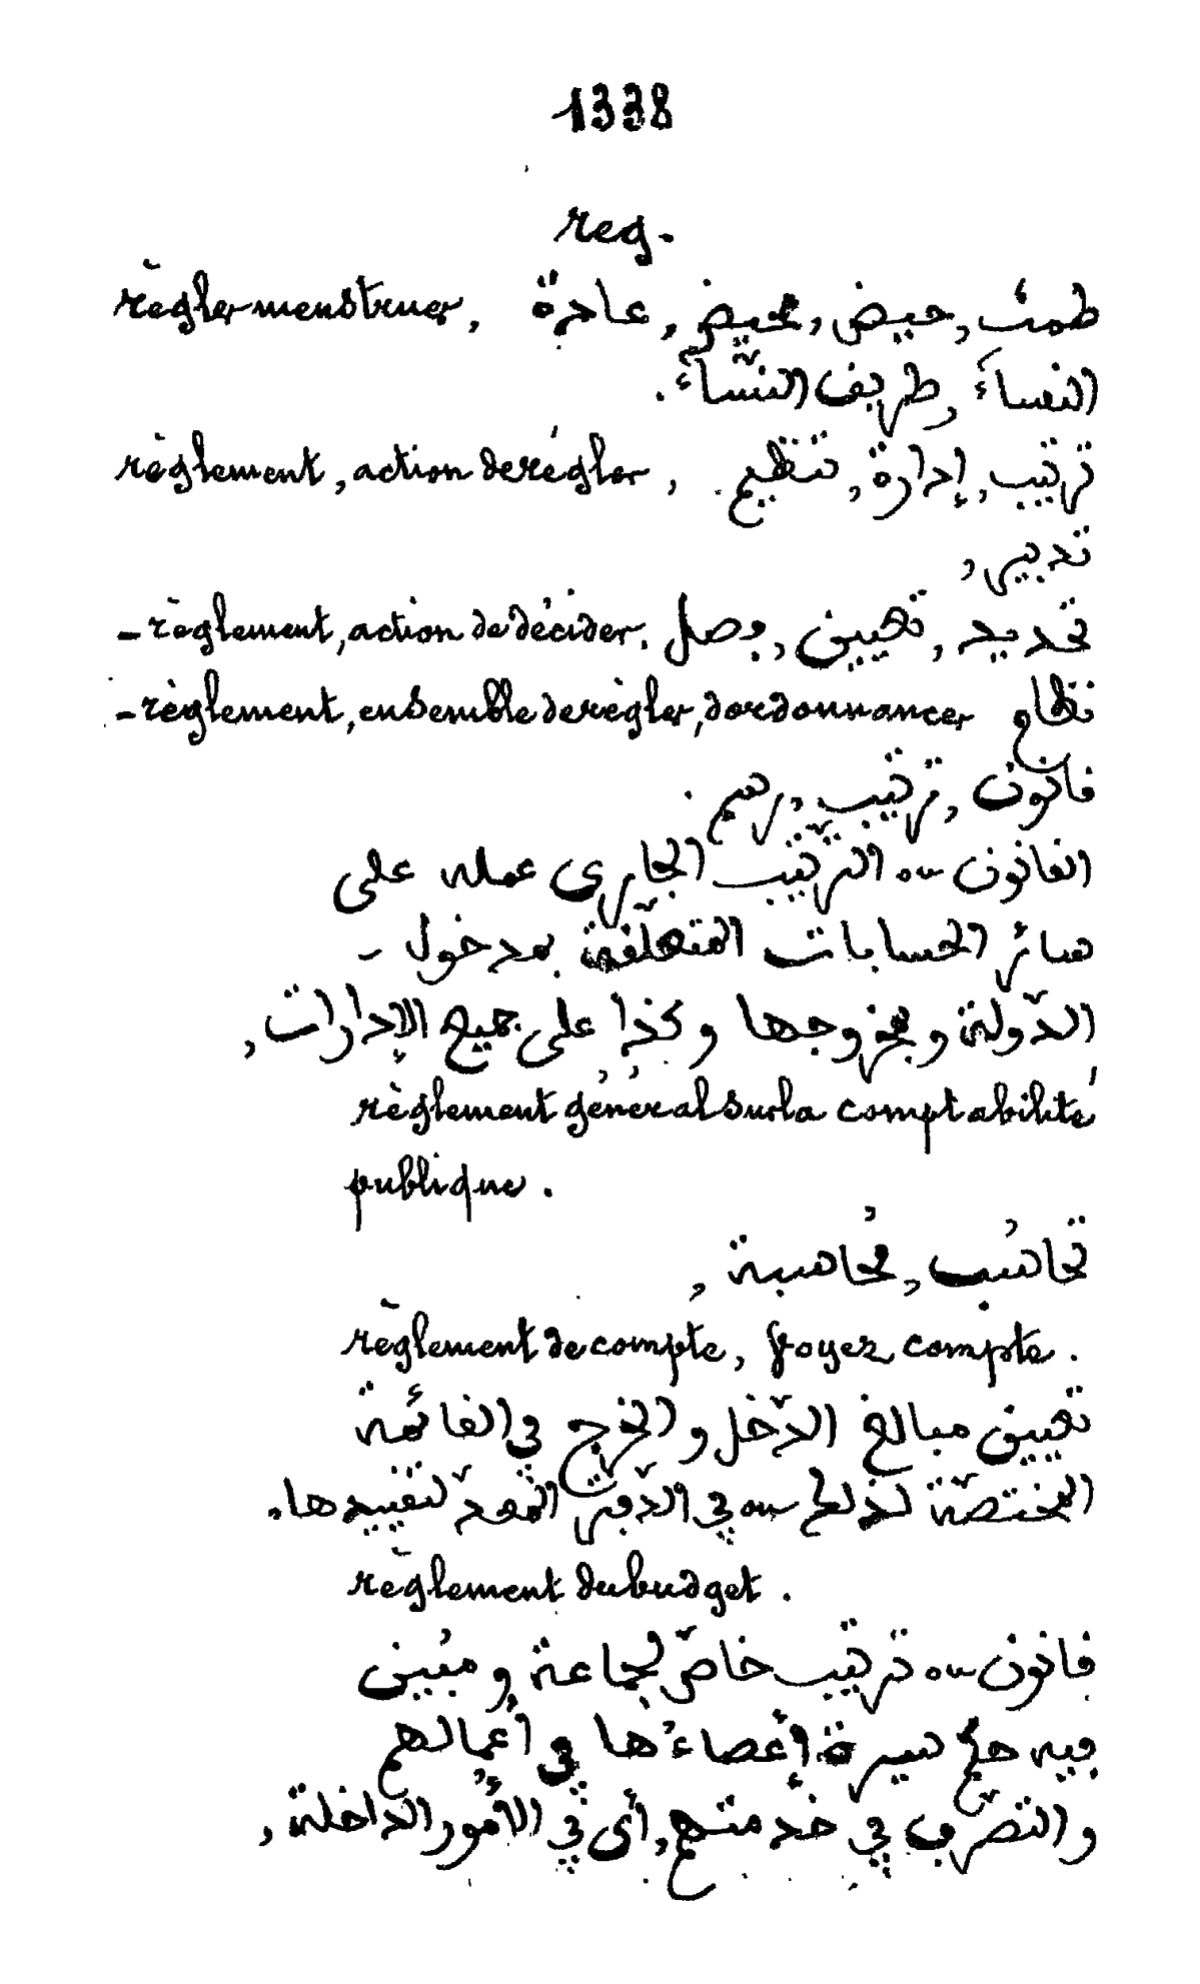 1338
reg.
règler menstruer, طمث, حيض, محيض, عادة
النساء, طريق النساء.
règlement, action de régler, ترتيب, إدارة, تنظيم
تدبير,
- règlement, action de décider. تحديد, تعيين, فصل
- règlement, ensemble de règler, d'ordonnancer نظام
قانون, ترتيب, رسم.
القانون ou الترتيب الجاري عمله على
سائر الحسابات المتعلّقة بمدخول -
الدّولة وبخروجها وكذا على جميع الإدارات,
règlement général sur la comptabilité
publique.
تحاسُب, مُحاسبة,
règlement de compte, Voyez compte.
تعيين مبالغ الدّخل والخرج في القائمة
المختصّة لذلك ou في الدّفتر المعدّ لتقييدها.
règlement du budget.
قانون ou ترتيب خاصّ لجماعة ومُبيّن
فيه حكم سيرة أعضاءُها في أعمالهم
والتصرّف في خدمتهم, أي في الأمُور الداخلة,